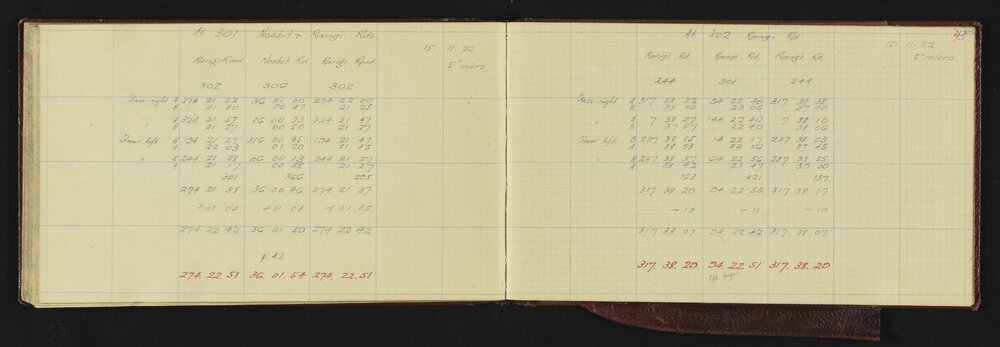 At 301 Nesbit & Rangi Rds.
15. 11. 22
5" micro
Rangi Road Nesbit Rd. Rangi Road
302 300 302
Face right A 274 21 52 36 01 00 274 22 00
B 21 30 00 47 21 25
" A 324 21 57 86 00 33 324 21 47
B 21 27 00 50 21 27
Face left B 194 21 27 316 00 45 194 21 47
A 22 03 01 20 21 35
" B 244 21 28 06 00 13 244 21 27
A 21 17 00 38 21 27
301 366 295
274 21 38 36 00 46 274 21 37
+ 01 04 + 01 04 + 01 05
274 22 42 36 01 50 274 22 42
p. 42
274. 22. 51 36. 01. 54 274. 22. 51
At 302 Rangi Rd.
15. 11. 22
5" micro
Rangi Rd. Rangi Rd. Rangi Rd.
244 301 244
Face right A 317 38 32 94 22 40 317 38 38
B 38 20 23 05 37 40
" A 7 38 27 144 22 40 7 38 10
B 37 57 22 40 38 06
Face left B 237 38 05 14 22 17 237 38 03
A 38 03 22 56 37 45
" B 287 38 57 64 22 56 287 38 55
A 38 42 23 47 39 00
163 421 137
317 38 20 94 22 53 317 38 17
- 13 - 11 - 10
317 38 07 94 22 42 317 38 07
317. 38. 20 94. 22. 51 317. 38. 20
page